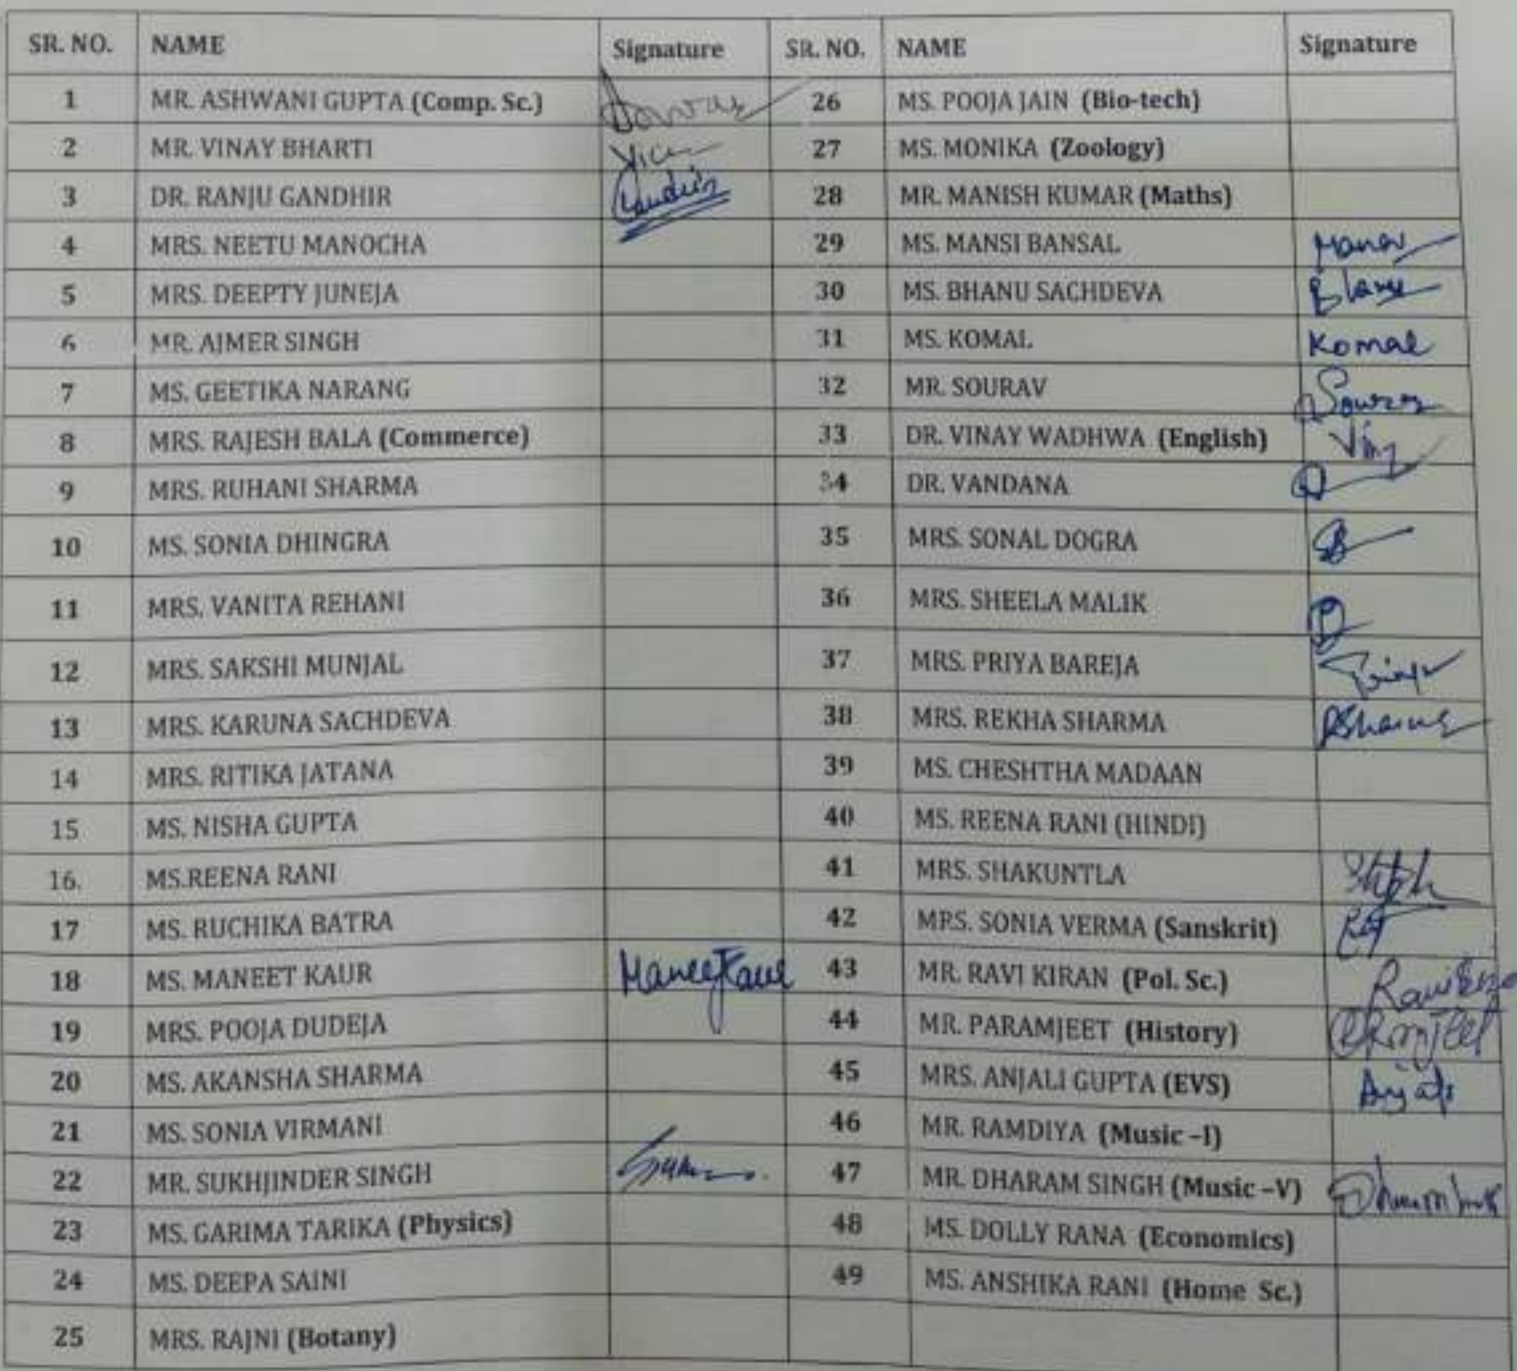 SR. NO. NAME Signature SR. NO. NAME Signature
1 MR. ASHWANI GUPTA (Comp. Sc.) 26 MS. POOJA JAIN (Bio-tech)
2 MR. VINAY BHARTI 27 MS. MONIKA (Zoology)
3 DR. RANJU GANDHIR 28 MR. MANISH KUMAR (Maths)
4 MRS. NEETU MANOCHA 29 MS. MANSI BANSAL
5 MRS. DEEPTY JUNEJA 30 MS. BHANU SACHDEVA
6 MR. AJMER SINGH 31 MS. KOMAL Komal
7 MS. GEETIKA NARANG 32 MR. SOURAV
8 MRS. RAJESH BALA (Commerce) 33 DR. VINAY WADHWA (English)
9 MRS. RUHANI SHARMA 34 DR. VANDANA
10 MS. SONIA DHINGRA 35 MRS. SONAL DOGRA
11 MRS. VANITA REHANI 36 MRS. SHEELA MALIK
12 MRS. SAKSHI MUNJAL 37 MRS. PRIYA BAREJA
13 MRS. KARUNA SACHDEVA 38 MRS. REKHA SHARMA
14 MRS. RITIKA JATANA 39 MS. CHESHTHA MADAAN
15 MS. NISHA GUPTA 40 MS. REENA RANI (HINDI)
16. MS.REENA RANI 41 MRS. SHAKUNTLA
17 MS. RUCHIKA BATRA 42 MRS. SONIA VERMA (Sanskrit)
18 MS. MANEET KAUR Maneet Kaur 43 MR. RAVI KIRAN (Pol. Sc.)
19 MRS. POOJA DUDEJA 44 MR. PARAMJEET (History)
20 MS. AKANSHA SHARMA 45 MRS. ANJALI GUPTA (EVS)
21 MS. SONIA VIRMANI 46 MR. RAMDIYA (Music –I)
22 MR. SUKHJINDER SINGH 47 MR. DHARAM SINGH (Music –V)
23 MS. GARIMA TARIKA (Physics) 48 MS. DOLLY RANA (Economics)
24 MS. DEEPA SAINI 49 MS. ANSHIKA RANI (Home Sc.)
25 MRS. RAJNI (Botany)